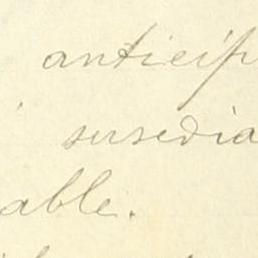 anticip
susedia
able.